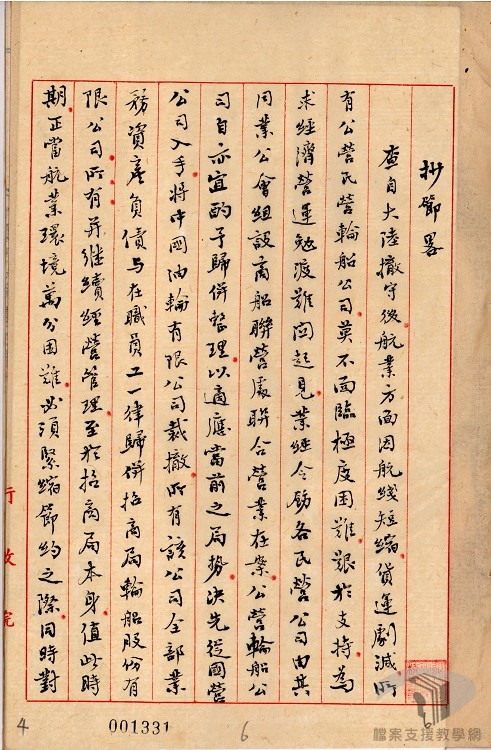 抄節畧
查自大陸撤守後航業方面因航綫短縮貨運劇減所
有公營民營輪船公司莫不面臨極度困難艱於支持為
求經濟營運勉渡難關起見業經令飭各民營公司由其
同業公會組設商船聯營處聯合營業在案公營輪船公
司自亦宜酌予歸併整理以適應當前之局勢決先從國營
公司入手將中國油輪有限公司裁撤所有該公司全部業
務資產負債与在職員工一律歸併招商局輪船股份有
限公司所有并继續經營管理至於招商局本身值此時
期正當航業環境萬分困難必須緊縮節約之際同時對
行政院
4
001331
6
6
檔案支援教學網